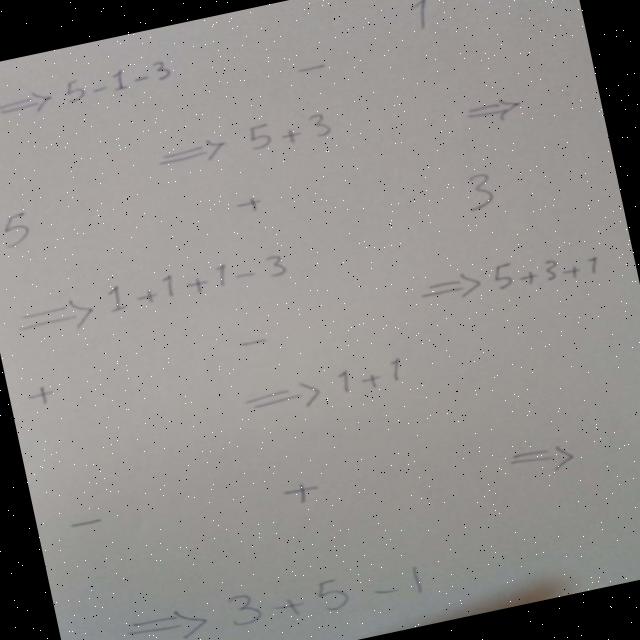 ⇒ 5-1-3
-
1
⇒ 5+3
⇒
5
+
3
⇒ 1+1+1-3
⇒ 5+3+1
-
+
⇒ 1+1
⇒
-
+
⇒ 3+5-1